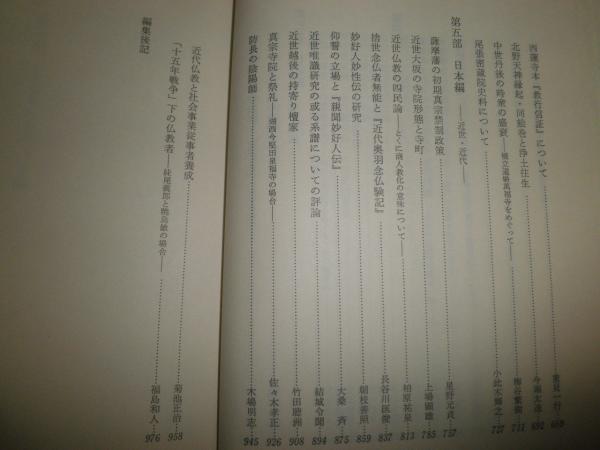 西蓮寺本『教行信証』について……重見一行…669
北野天神縁起・同絵巻と浄土往生……今堀太逸…692
中世丹後の時衆の盛衰——橋立道場萬福寺をめぐって——……梅谷繁樹…711
尾張密蔵院史料について……小此木輝之…727
第五部 日本編——近世・近代——
薩摩藩の初期真宗禁制政策……星野元貞…757
近世大坂の寺院形態と寺町……上場顕雄…785
近世仏教の四民論——とくに商人教化の意味について——……柏原祐泉…813
捨世念仏者無能と『近代奥羽念仏験記』……長谷川匡俊…837
妙好人妙性伝の研究……朝枝善照…859
仰誓の立場と『親聞妙好人伝』……大桑斉…875
近世唯識研究の或る系譜についての評論……結城令聞…894
近世越後の持寄り檀家……竹田聴洲…908
真宗寺院と祭礼——湖西今堅田泉福寺の場合——……佐々木孝正…926
防長の陰陽師……木場明志…945
近代仏教と社会事業従事者養成……菊池正治…958
「十五年戦争」下の仏教者——妹尾義郎と暁烏敏の場合——……福島和人…976
編集後記